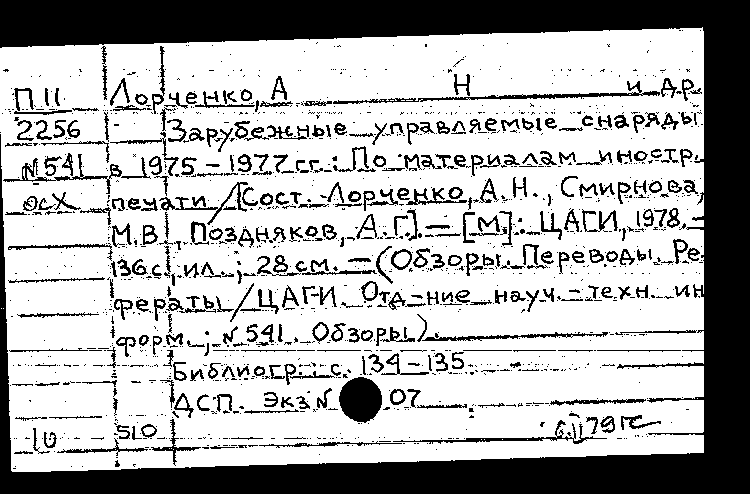 П II Лорченко, А Н и др.
2256 Зарубежные управляемые снаряды
№541 в 1975-1977 гг.: По материалам иностр.
осх печати / [Сост. Лорченко, А.Н., Смирнова,
М.В., Поздняков, А.Г.] — [М]: ЦАГИ, 1978. —
136 с., ил.; 28 см. — (Обзоры. Переводы. Ре-
фераты / ЦАГИ. Отд-ние науч.-техн. ин
форм.; №541. Обзоры).
Библиогр.: с. 134-135.
ДСП. Экз № 07
10 510 6.II 79 г